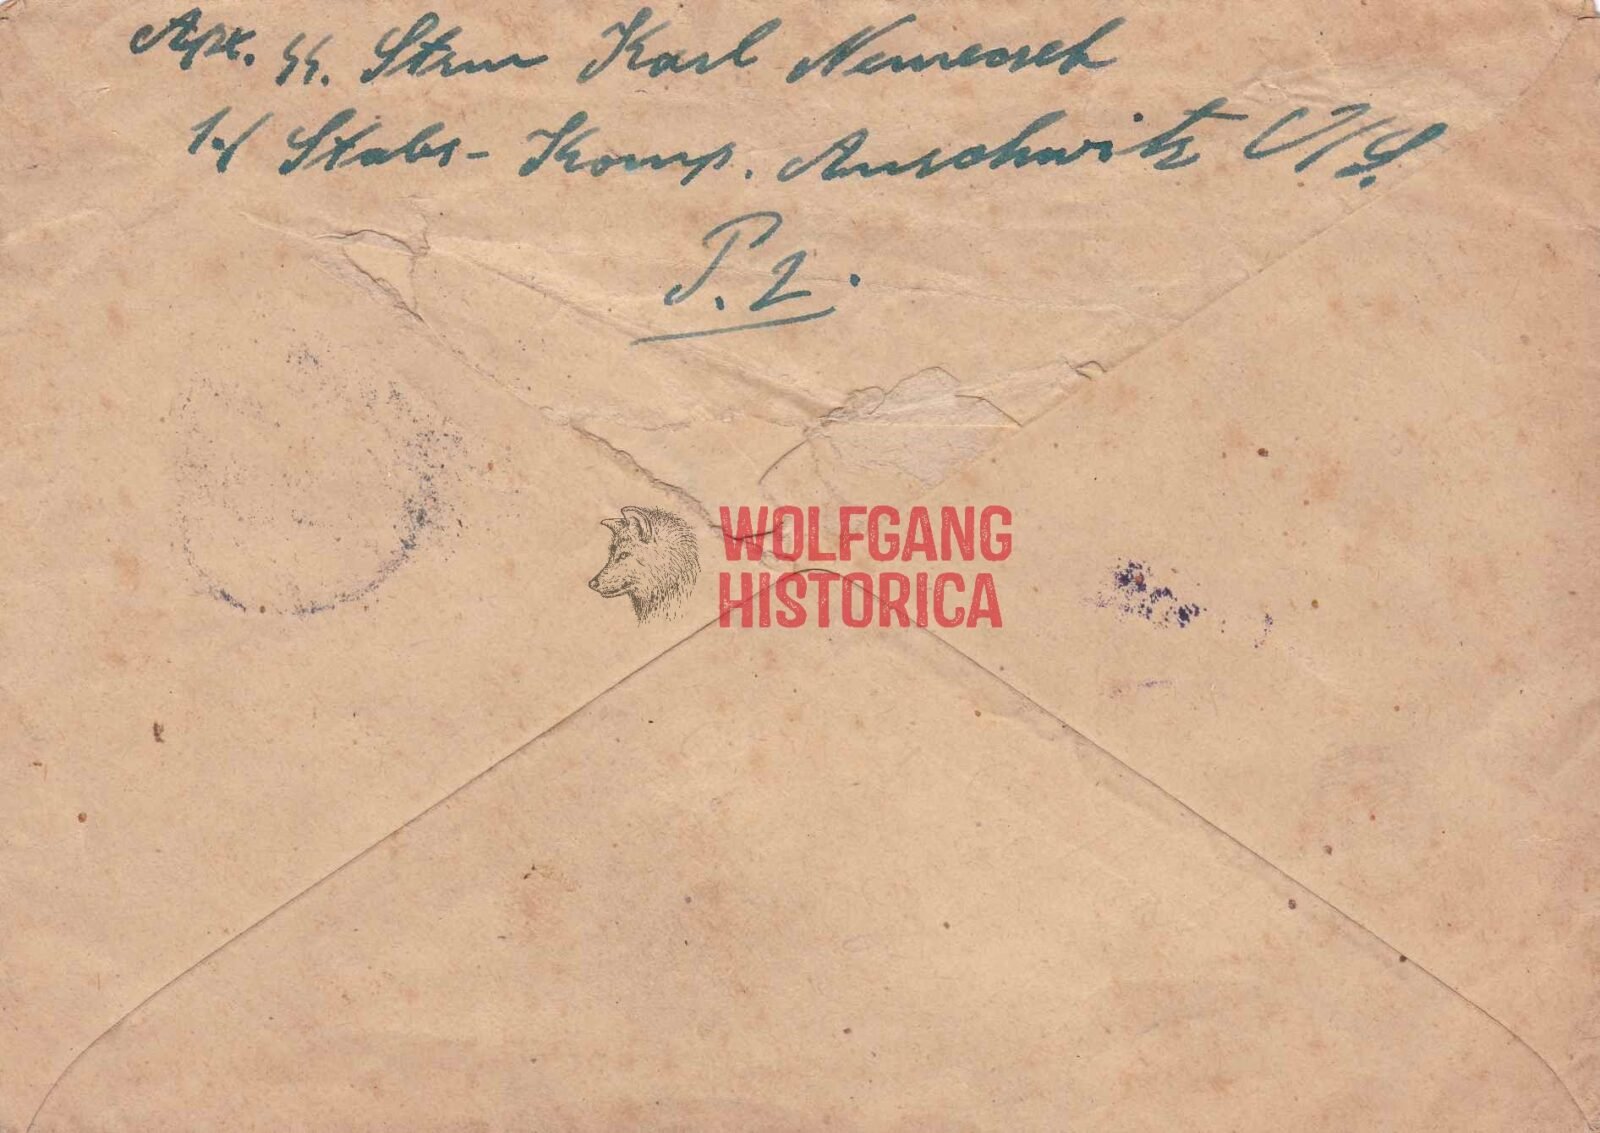 SS. Strm Karl
1./ Stabs-Komp. Auschwitz O/S.
P. 2.
WOLFGANG
HISTORICA